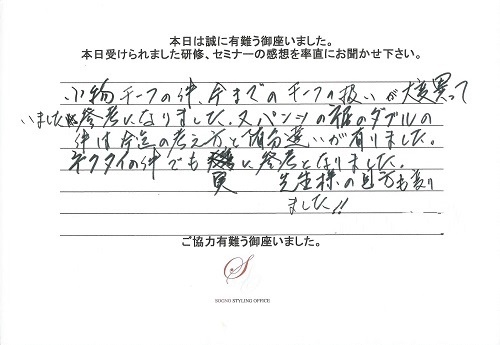 本日は誠に有難う御座いました。
本日受けられました研修、セミナーの感想を率直にお聞かせ下さい。
小物チーフの件、今までのチーフの扱いが大変異って
いました 参考になりました。又パンツの裾のダブルの
件は今迄の考え方と随分違いが有りました。
ネクタイの件でも 更に参考となりました。
先生様の見方も
ました!!
ご協力有難う御座いました。
S
SOGNO STYLING OFFICE